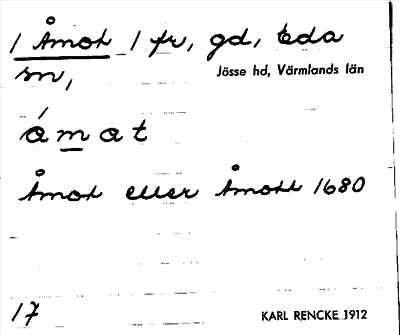 1 Åmot 1 fr, gd, Eda
sn,
Jösse hd, Värmlands län
ámat
Åmot eller Åmott 1680
17
KARL RENCKE 1912